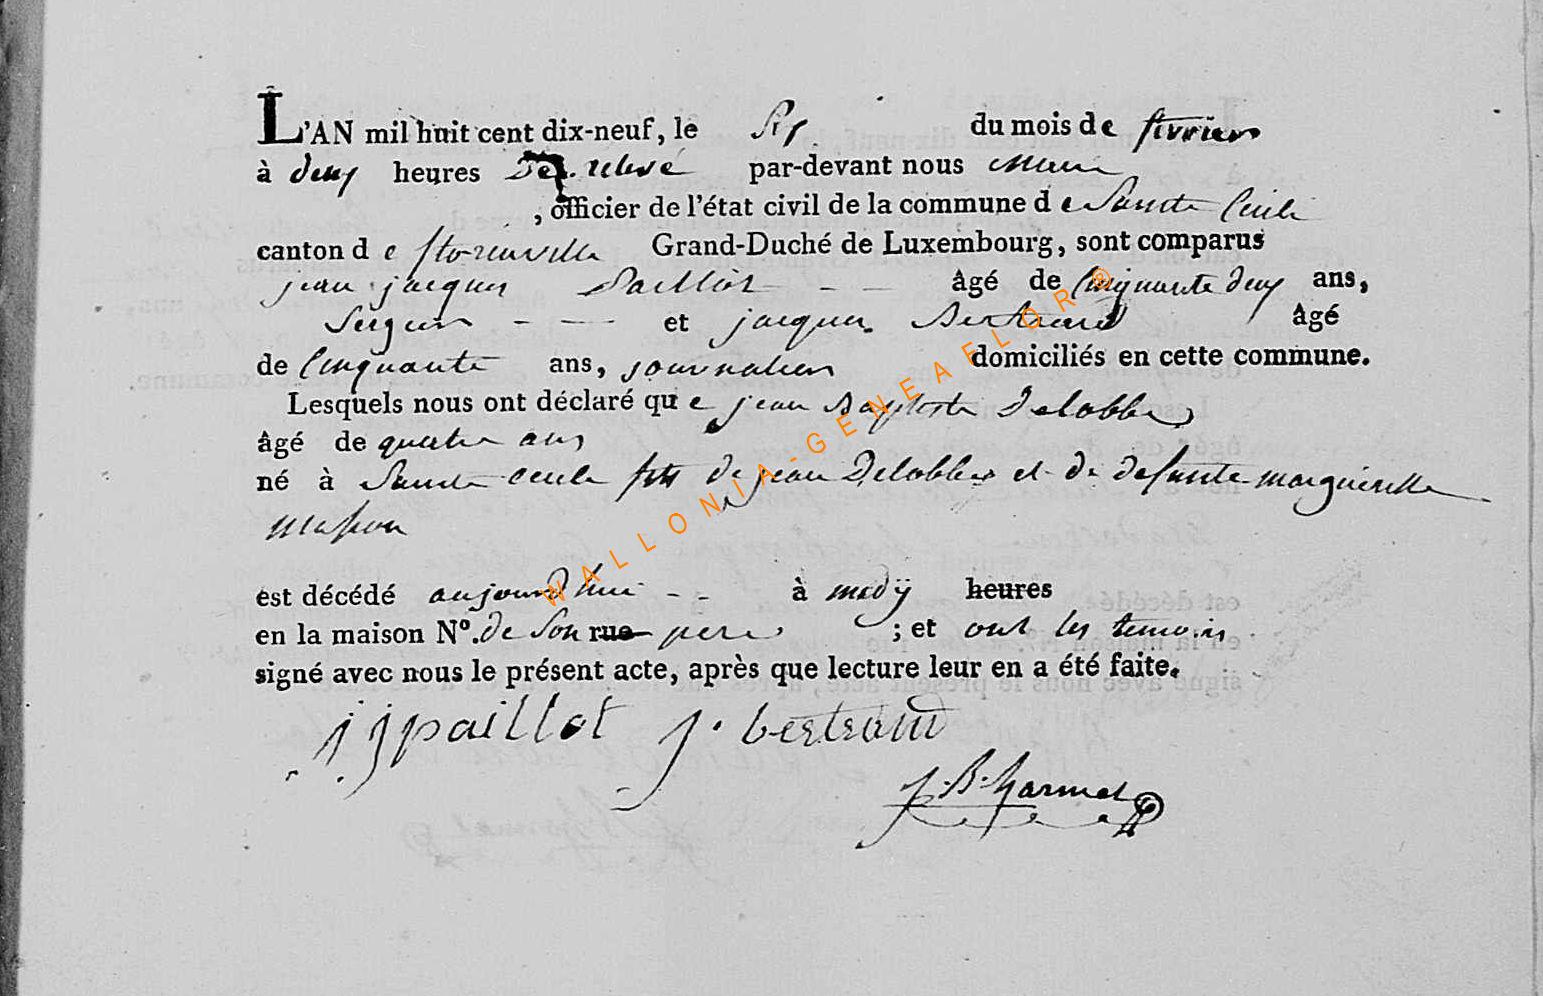 L'AN mil huit cent dix-neuf, le six du mois de fevrier
à deux heures de relevé par-devant nous maire
, officier de l'état civil de la commune de Sainte Cecile
canton de florenville Grand-Duché de Luxembourg, sont comparus
jean jacques Paillot - - âgé de cinquante deux ans,
Sergent - - et jacques Bertrand âgé
de cinquante ans, journalier domiciliés en cette commune.
Lesquels nous ont déclaré que jean Baptiste Delobbe
âgé de quatre ans
né à Sainte cecile fils de jean Delobbe et de defunte marguerite
masson
est décédé aujourd'hui - - à midÿ heures
en la maison Nº. de Son rue pere ; et ont les temoins
signé avec nous le présent acte, après que lecture leur en a été faite.
jjpaillot j. bertrand
WALLONIA-GENEAFLOR®